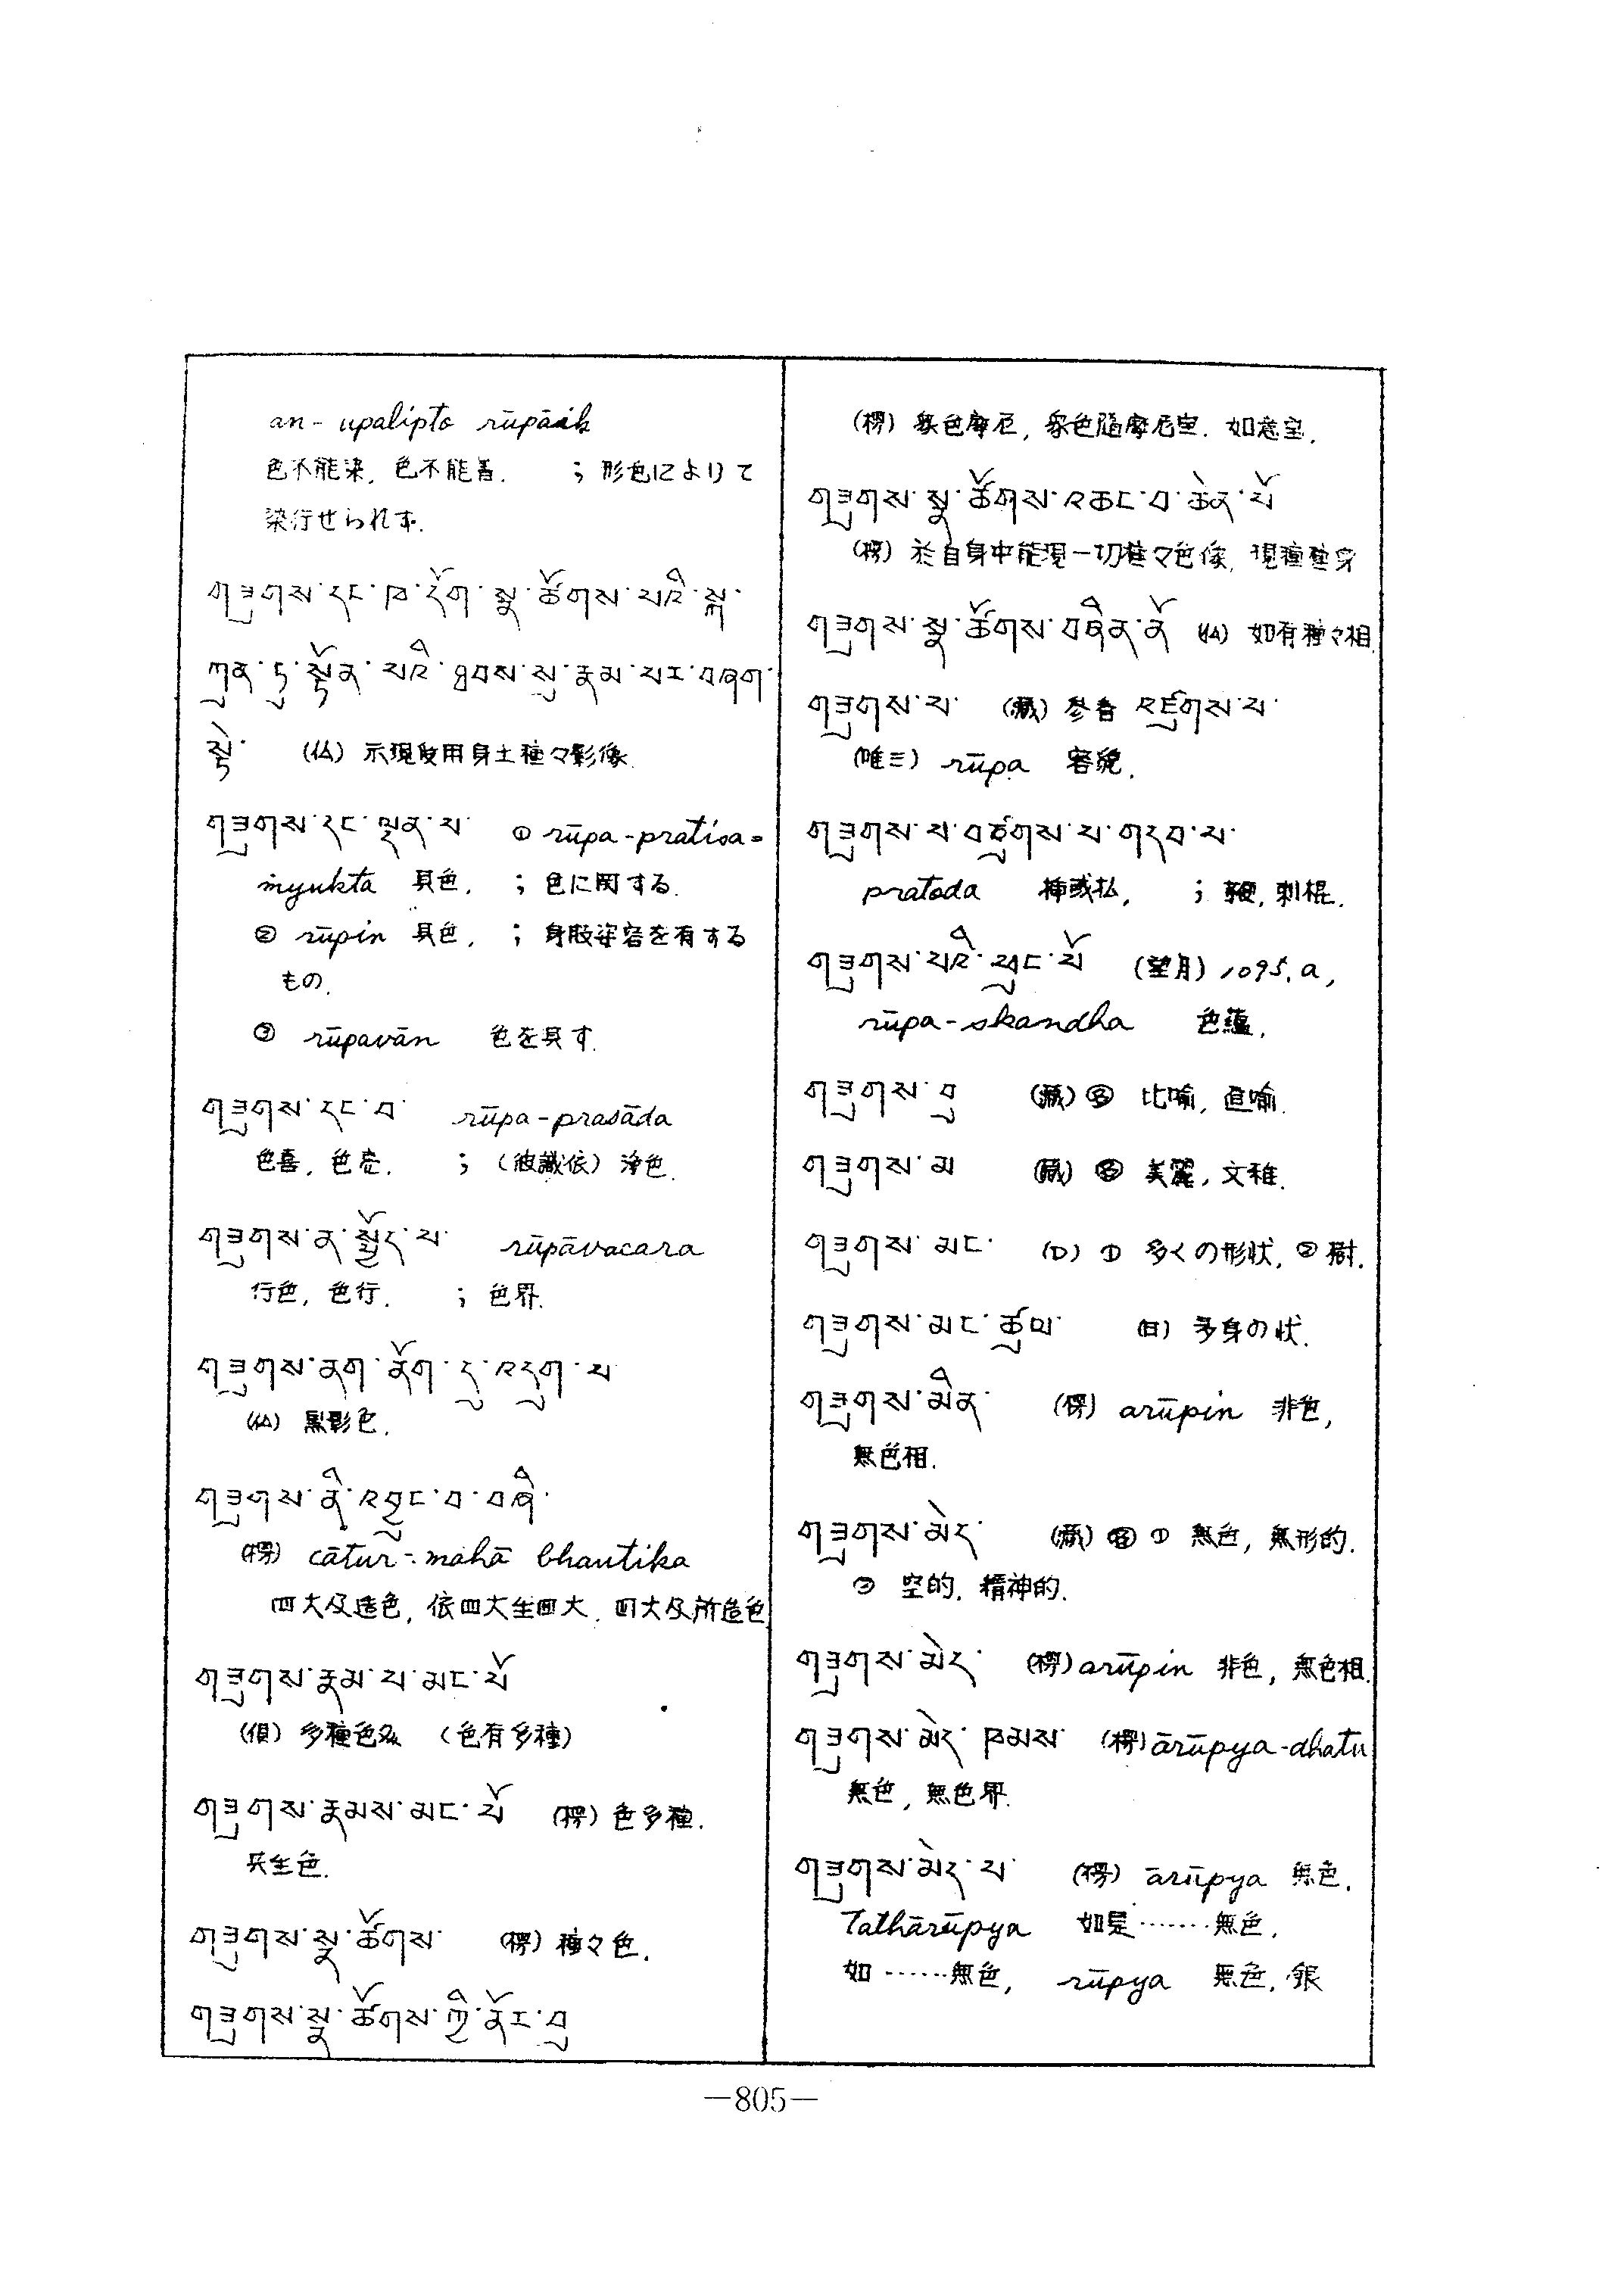 an-upalipto rūpāih
色不能染, 色不能着. ; 形色によりて
染行せられず.
གཟུགས་དང་ཁ་དོག་སྣ་ཚོགས་པའི་སྐུ་
ཀུན་ཏུ་སྟོན་པའི་ཐབས་སུ་རྣམ་པར་བཞག་
སྟེ་ (仏) 示現受用身土種々影像.
གཟུགས་དང་ལྡན་པ་ ① rūpa-pratisa=
ṃyukta 具色, ; 色に関する.
② rūpin 具色, ; 身肢姿容を有する
もの.
③ rūpavān 色を具す.
གཟུགས་དང་བ་ rūpa-prasāda
色喜, 色壱. ; (彼識依) 浄色.
གཟུགས་ན་སྤྱོད་པ་ rūpāvacara
行色, 色行. ; 色界.
གཟུགས་ནག་ནོག་དུ་འདུག་པ
(仏) 黒影色.
གཟུགས་ནི་འབྱུང་བ་བཞི་
(楞) cātur=mahā bhautika
四大及造色, 依四大生四大, 四大及所造色.
གཟུགས་རྣམ་པ་མང་པོ
(倶) 多種色 (色有多種)
གཟུགས་རྣམས་མང་པོ (楞) 色多種.
共生色.
གཟུགས་སྣ་ཚོགས་ (楞) 種々色.
གཟུགས་སྣ་ཚོགས་ཀྱི་ནོར་བུ
(楞) 衆色摩尼, 衆色随摩尼宝. 如意宝.
གཟུགས་སྣ་ཚོགས་འཆང་བ་ཆེན་པོ
(楞) 於自身中能現一切種々色像, 現種種身
གཟུགས་སྣ་ཚོགས་བཞིན་ནོ (仏) 如有種々相.
གཟུགས་པ་ (蔵) 参看 འཛུགས་པ་
(唯三) rūpa 容貌.
གཟུགས་པ་བཙུགས་པ་གདབ་པ་
pratoda 挿或払, ; 鞭, 刺棍.
གཟུགས་པའི་ཕུང་པོ (望月) 1095, a,
rūpa-skandha 色蘊.
གཟུགས་བུ (蔵) 名 比喻, 直喻.
གཟུགས་མ (蔵) 名 美麗, 文雅.
གཟུགས་མང་ (D) ① 多くの形状, ② 樹.
གཟུགས་མང་ཚུལ་ (日) 多身の状.
གཟུགས་མིན་ (楞) arūpin 非色,
無色相.
གཟུགས་མེད་ (蔵) ① 無色, 無形的.
② 空的, 精神的.
གཟུགས་མེད་ (楞) arūpin 非色, 無色相.
གཟུགས་མེད་ཁམས་ (楞) ārūpya-dhatu
無色, 無色界.
གཟུགས་མེད་པ་ (楞) ārūpya 無色.
Tathārūpya 如是……無色.
如……無色, rūpya 無色, 銀
—805—